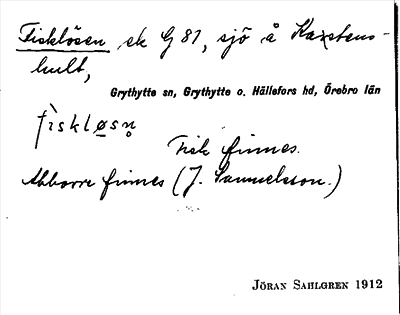 Fisklösen sk G 87, sjö å Karstens-
hult,
Grythytte sn, Grythytte o. Hällefors hd, Örebro län
fìskløsn̥
Fisk finnes.
Abborre finnes (J. Samuelsson.)
JÖRAN SAHLGREN 1912